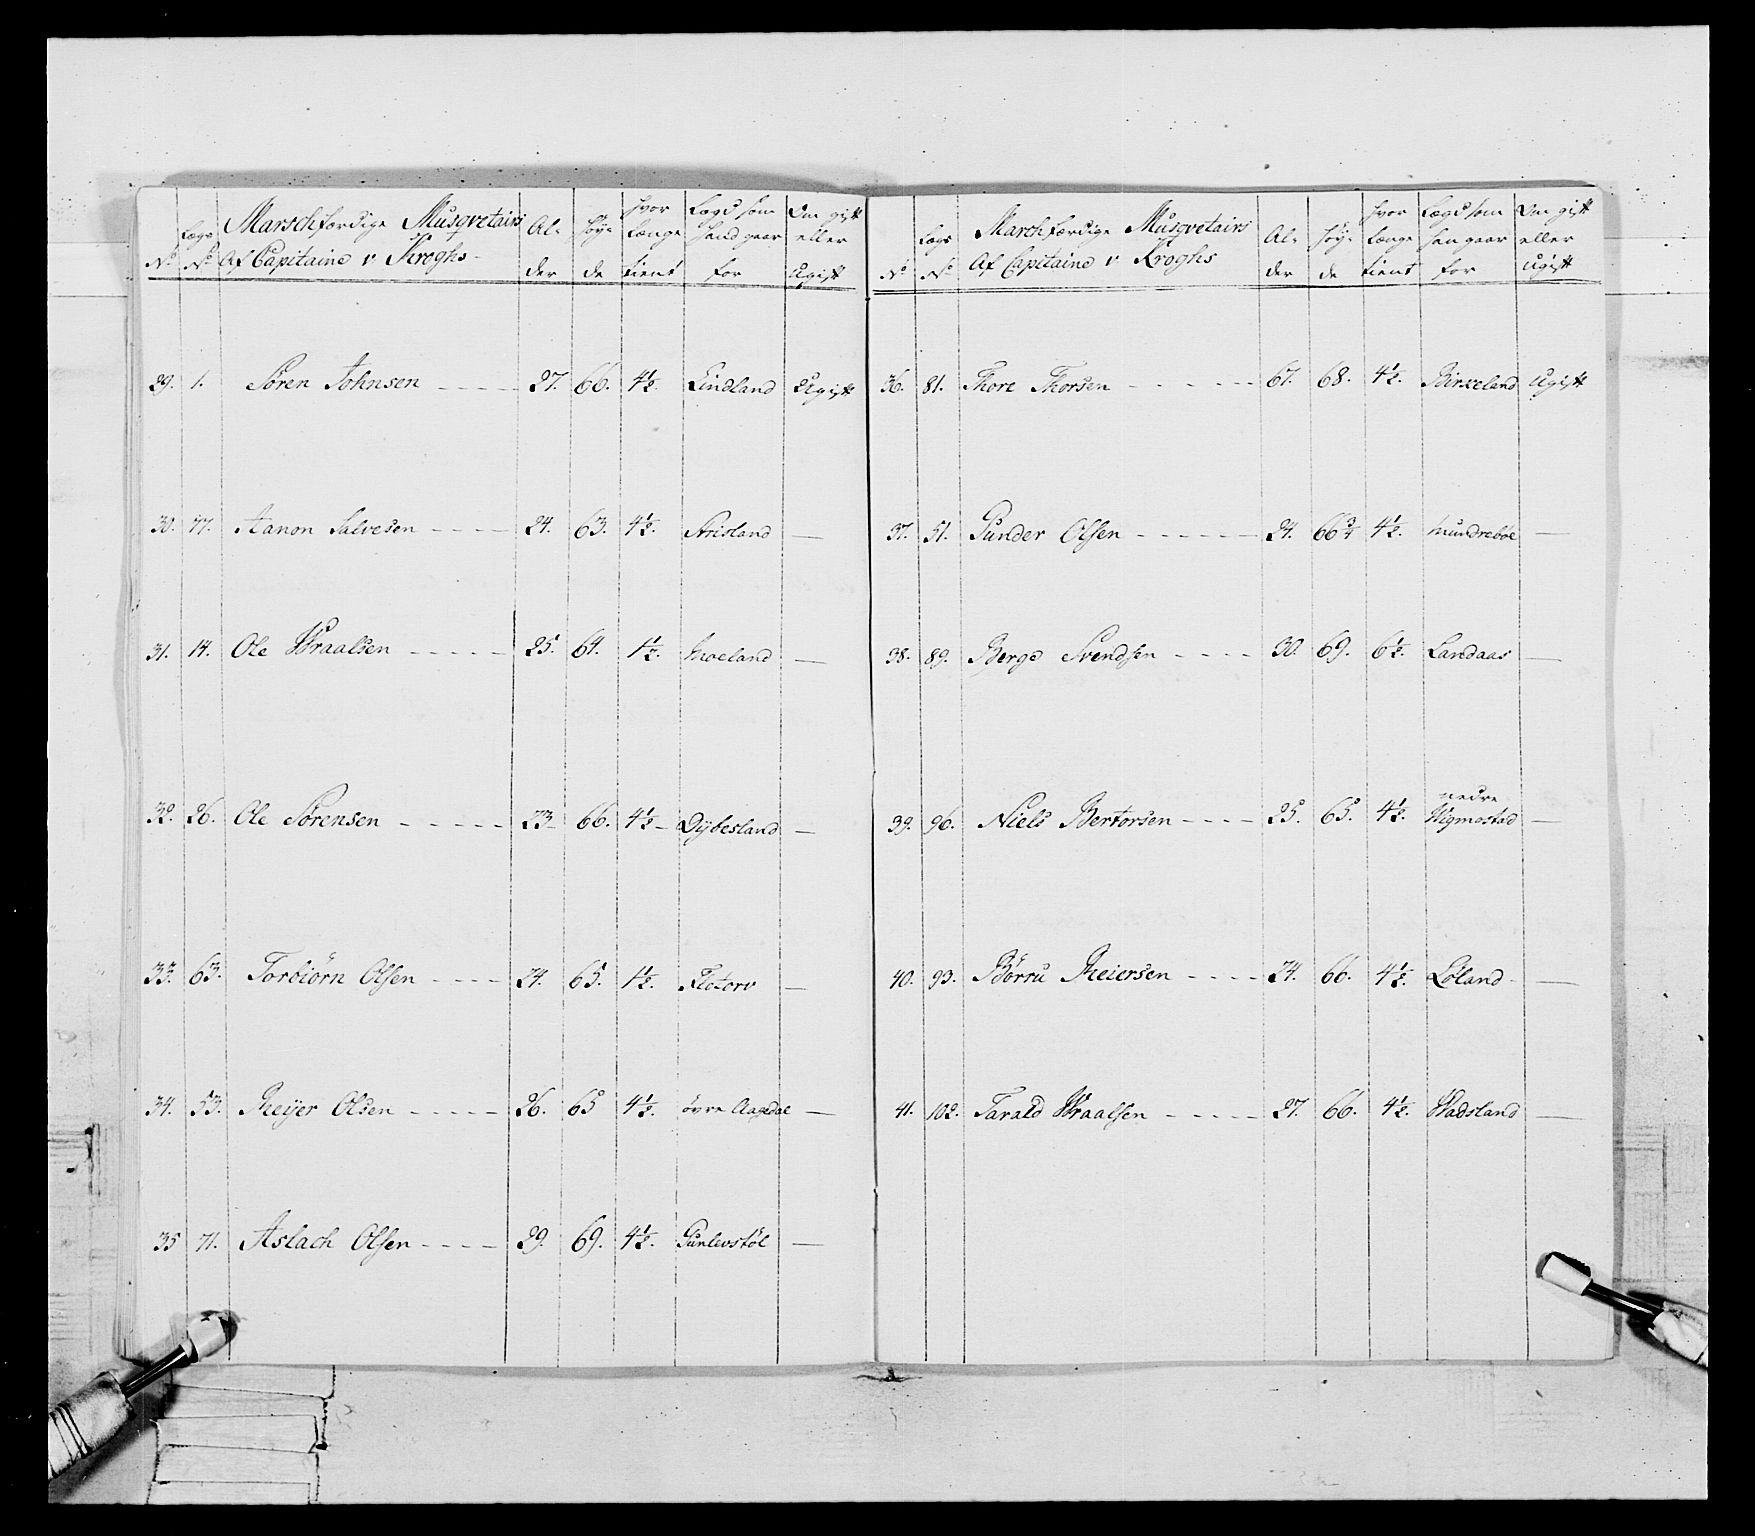 No Lægs No Marschfærdige Musqvetairs Af Capitaine v Kroghs Al-der Høy-de hvor længe tient Lægd som hand gaar for Om gift eller Ugift
29. 1. Søren Johnsen 27. 66. 4½. Lindland Ugift
30. 77. Aanon Salvesen 24. 63. 4½. Frisland —
31. 14. Ole Wraalsen 25. 64. 1½. Moeland —
32. 26. Ole Sørensen 23 66. 4½ Dybesland —
33. 63. Torbiørn Olsen 24. 65. 1½. Fletorv —
34. 53. Reiyer Olsen 26. 65 4½. øvre Aagedal —
35 71. Aslach Olsen 29. 69. 4½. Gunlevstøl —
No Lægs No Marchfærdige Musqvetairs Af Capitaine v Kroghs Al-der høy-de hvor længe tient Lægd som han gaar for Om gift eller Ugift
36. 81. Thore Thorsen 67. 68. 4½. Birkeland Ugift
37. 51. Gunder Olsen 24. 66¾ 4½. Mundreboe —
38. 89. Berge Svendsen 30. 69. 6½. Landaas —
39. 96. Niels Bertorsen 25. 65. 4½. nedre Wigmostad —
40. 93. Børru Reiersen 24. 66. 4½. Løland —
41. 102. Tarald Wraalsen 27. 66. 4½. Wadsland —